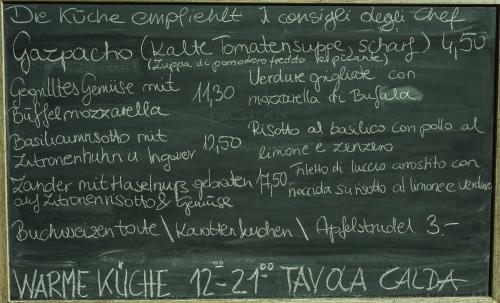 Die Küche empfiehlt I consigli degli Chef
Gazpacho (Kalte Tomatensuppe, scharf) 4,50
(Zuppa di pomodoro freddo piccante)
Gegrilltes Gemüse mit 11,30 Verdure grigliate con
Büffelmozzarella mozzarella di Bufala
Basilicumrisotto mit 12,50 Risotto al basilico con pollo al
Zitronenhuhn u. Ingwer limone e zenzero
Zander mit Haselnuß gebraten 17,50 Filetto di luccio arrostito con
auf Zitronenrisotto & Gemüse su risotto al limone e verdure
Buchweizentorte \ Karottenkuchen \ Apfelstrudel 3.-
WARME KÜCHE 12⁰⁰-21⁰⁰ TAVOLA CALDA